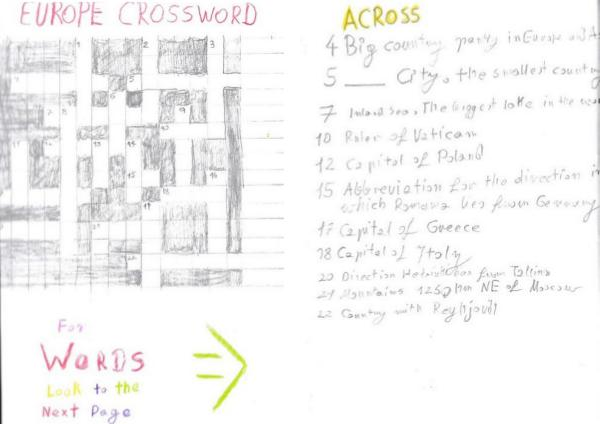 EUROPE CROSSWORD
ACROSS
4 Big country partly in Europe
5 ___ City, the smallest country
7 Inland sea, The biggest lake in the
10 Ruler of Vatican
12 Capital of Poland
15 Abbreviation for the direction in
which Romania lies from Germany
17 Capital of Greece
18 Capital of Italy
20 Direction Helsinki lies from Tallinn
21 Mountains 1250 km NE of Moscow
22 Country with Reykjavik
For
WORDS
Look to the
Next Page